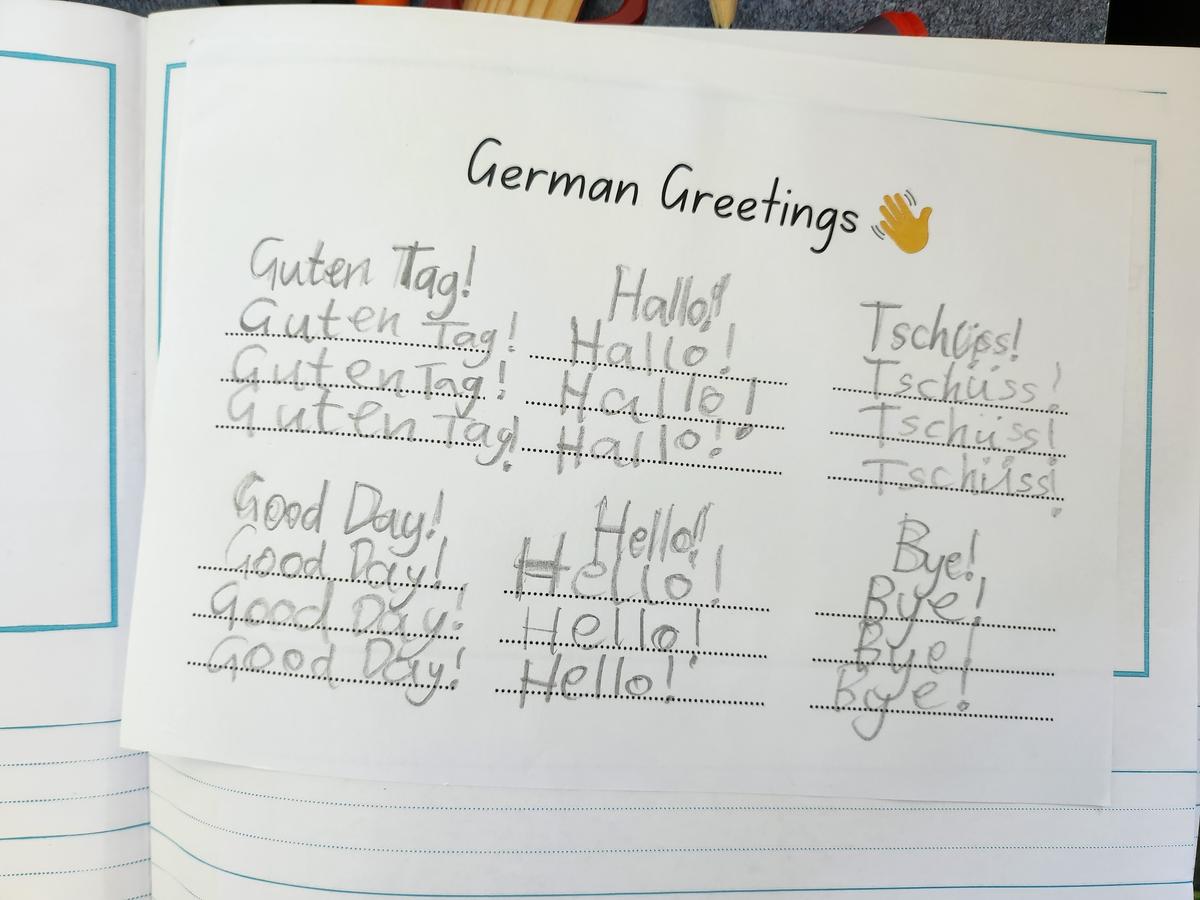 German Greetings 👋
Guten Tag! Hallo! Tschüss!
Guten Tag! Hallo! Tschüss!
Guten Tag! Hallo! Tschüss!
Guten Tag! Hallo! Tschüss!
Good Day! Hello! Bye!
Good Day! Hello! Bye!
Good Day! Hello! Bye!
Good Day! Hello! Bye!